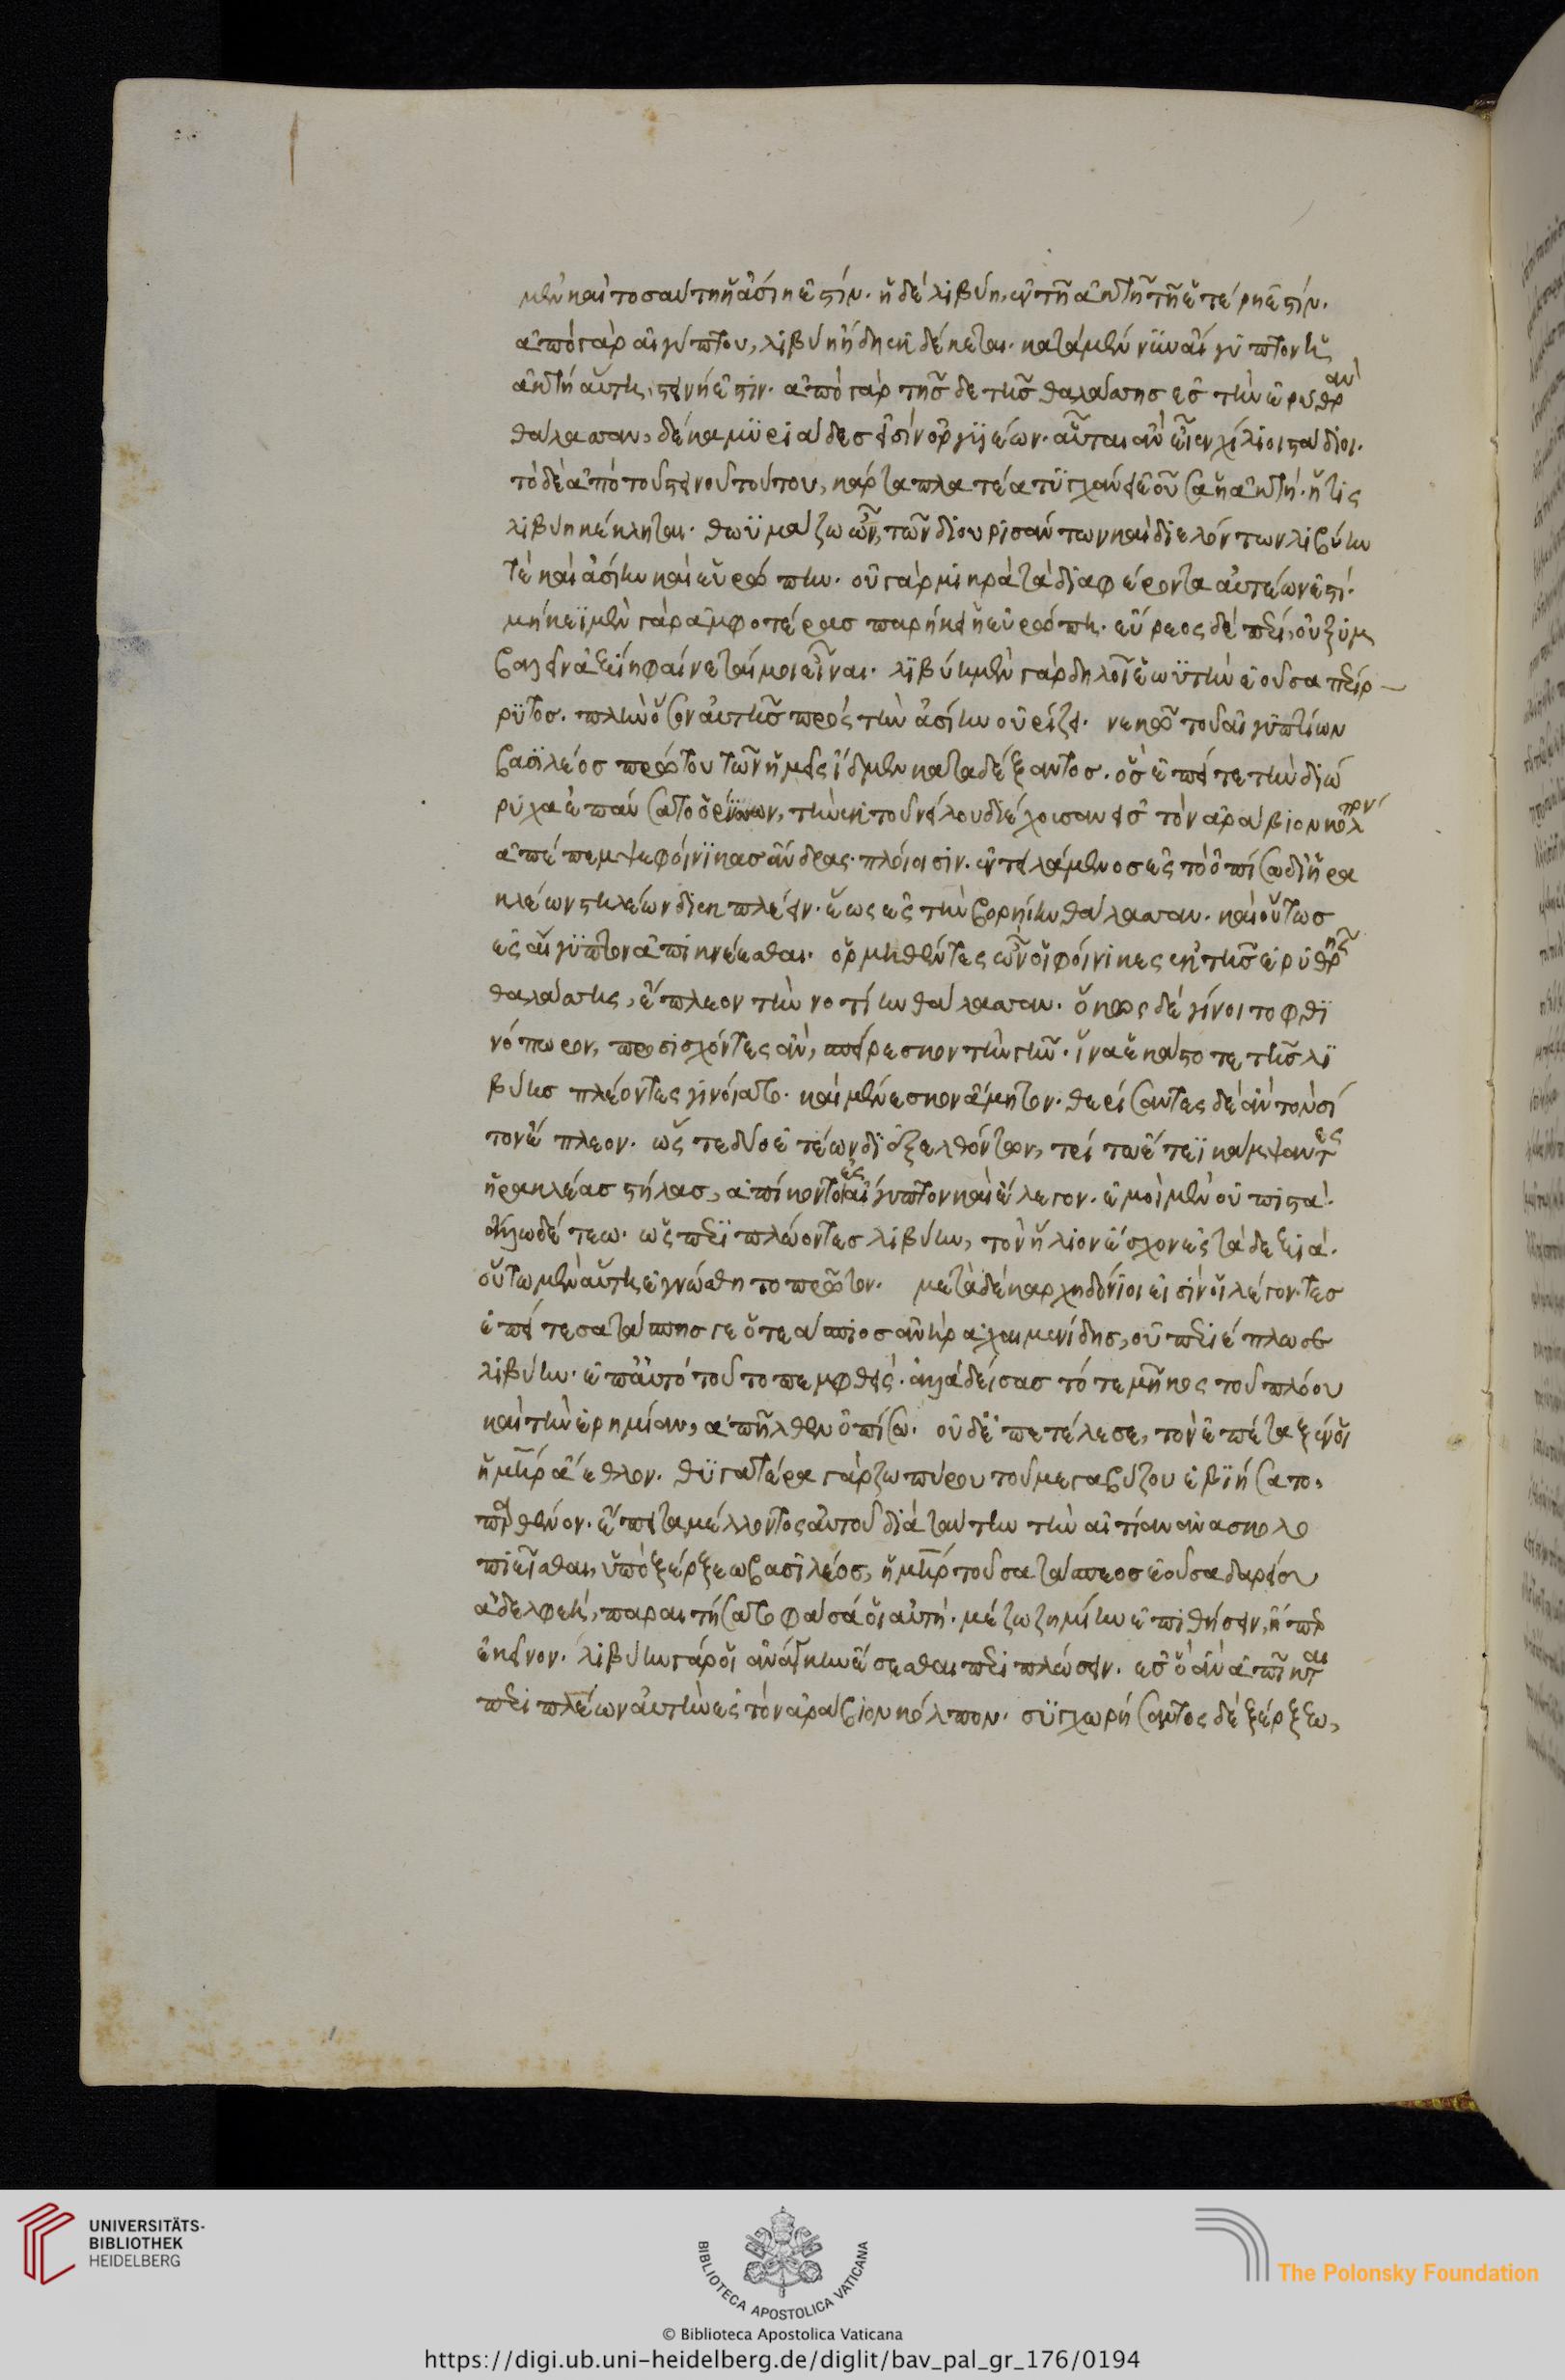 μὲν καὶ τοσαύτη ἡ ἀσίη ἐστίν. ἡ δὲ λιβύη, ἐν τῆ ἀκτῆ τῆ ἑτέρη ἐστίν.
ἀπὸ γὰρ αἰγύπτου, λιβύη ἤδη ἐκδέκεται. κατὰ μέν νυν αἴγυπτον ἡ
ἀκτὴ αὕτη, στεινή ἐστιν. ἀπὸ γὰρ τῆσδε τῆς θαλάσσης ἐς τὴν ἐρυθρὰν
θάλασσαν, δέκα μυριάδες εἰσὶν ὀργυιέων. αὗται ἂν εἶεν χίλιοι στάδιοι.
τὸ δὲ ἀπὸ τοῦ στεινοῦ τούτου, κάρτα πλατέα τυγχάνει ἐοῦσα ἡ ἀκτή. ἥτις
λιβύη κέκληται. θωυμάζω ὦν, τῶν διουρισάντων καὶ διελόντων λιβύην
τὲ καὶ ἀσίην καὶ εὐρώπην. οὐ γὰρ μικρὰ τὰ διαφέροντα αὐτέων ἐστί.
μήκεϊ μὲν γὰρ ἀμφοτέρας παρήκει ἡ εὐρώπη. εὔρεος δὲ πέρι, οὐ ξυμ
βαλεῖν ἀξίη φαίνεταί μοι εἶναι. λιβύη μὲν γὰρ δηλοῖ ἑωυτὴν ἐοῦσα περίρ
ρυτος. πλὴν ὅσον αὐτῆς πρὸς τὴν ἀσίην οὐρίζει. νεκῶ τοῦ αἰγυπτίων
βασιλέος πρώτου τῶν ἡμεῖς ἴδμεν καταδέξαντος. ὃς ἐπεί τε τὴν διώ
ρυχα ἐπαύσατο ὀρύσσων, τὴν ἐκ τοῦ νείλου διέχουσαν ἐς τὸν ἀράβιον κόλπον
ἀπέπεμψε φοίνικας ἄνδρας πλοίοισιν. ἐντειλάμενος ἐς τὸ ὀπίσω δι' ἡρα
κλέων στηλέων διεκπλέειν. ἕως ἐς τὴν βορηίην θάλασσαν. καὶ οὕτως
ἐς αἴγυπτον ἀπικνέεσθαι. ὁρμηθέντες ὦν οἱ φοίνικες ἐκ τῆς ἐρυθρῆς
θαλάσσης, ἔπλεον τὴν νοτίην θάλασσαν. ὅκως δὲ γίνοιτο φθι
νόπωρον, προσισχόντες ἂν, σπείρεσκον τὴν γῆν. ἵνα ἑκάστοτε τῆς λι
βύης πλέοντες γινοίατο. καὶ μένεσκον ἄμητον. θερίσαντες δ' ἂν τὸν σῖ
τον ἔπλεον. ὥς τε δύο ἐτέων διεξελθόντων, τρίτω ἔτεϊ κάμψαντες
ἡρακλέας στήλας, ἀπίκοντο ἐς αἴγυπτον καὶ ἔλεγον. ἐμοὶ μὲν οὐ πιστά.
ἄλλω δέ τεω. ὡς περιπλώοντες λιβύην, τὸν ἥλιον ἔσχον ἐς τὰ δεξιά.
οὕτω μὲν αὕτη ἐγνώσθη τὸ πρῶτον. μετὰ δὲ καρχηδόνιοι εἰσὶν οἱ λέγοντες
ἐπεί τε σατάσπης γε ὁ τεάσπιος ἀνὴρ ἀχαιμενίδης, οὐ περιέπλωσε
λιβύην. ἐπ' αὐτὸ τοῦτο πεμφθείς. ἀλλὰ δείσας τό τε μῆκος τοῦ πλόου
καὶ τὴν ἐρημίαν, ἀπῆλθεν ὀπίσω. οὐδ' ἐπετέλεσε, τὸν ἐπέταξέν οἱ
ἡ μὴρ ἄεθλον. θυγατέρα γὰρ ζωπύρου τοῦ μεγαβύζου ἐβιήσατο.
παρθένον. ἔπειτα μέλλοντος αὐτοῦ διὰ ταύτην τὴν αἰτίαν ἀνασκολο
πιεῖσθαι, ὑπὸ ξέρξεω βασιλέος, ἡ μὴρ τοῦ σατάσπεος ἐοῦσα δαρείου
ἀδελφεὴ, παραιτήσατο φᾶσά οἱ αὐτὴ. μέζω ζημίην ἐπιθήσειν, ἤπερ
ἐκεῖνον. λιβύην γάρ οἱ ἀνάγκην ἔσεσθαι περιπλώσειν. ἐς ὃ ἂν ἀπίκηται
περιπλέων αὐτὴν ἐς τὸν ἀράβιον κόλπον. συγχωρήσαντος δὲ ξέρξεω,
UNIVERSITÄTS-
BIBLIOTHEK
HEIDELBERG
BIBLIOTHECA APOSTOLICA VATICANA
The Polonsky Foundation
© Biblioteca Apostolica Vaticana
https://digi.ub.uni-heidelberg.de/diglit/bav_pal_gr_176/0194